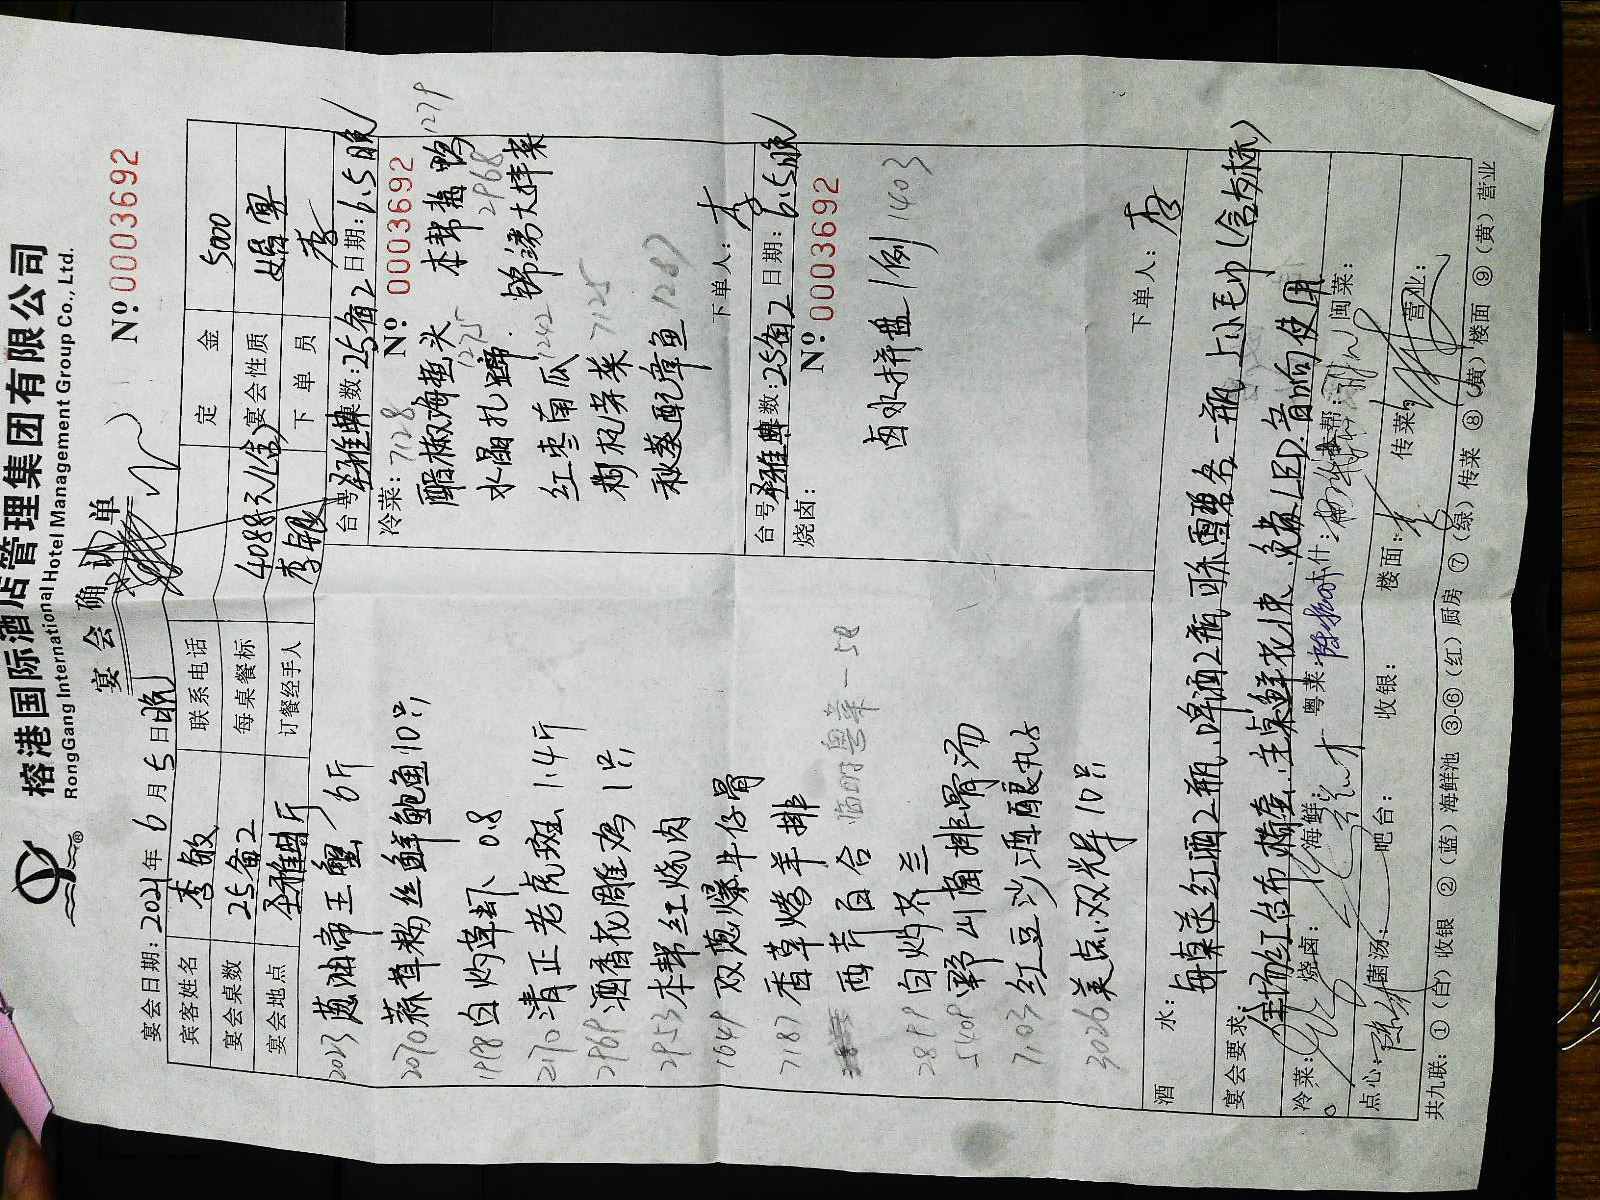 榕港国际酒店管理集团有限公司
RongGang International Hotel Management Group Co., Ltd.
宴会确认单
№ 0003692
宴会日期：2021年6月5日晚
宾客姓名 李敏 联系电话 定金 5000
宴会桌数 25备2 每桌餐标 4088元/(含) 宴会性质 婚宴
宴会地点 订餐经手人 李银 下单员 李
2023 葱油帝王蟹 6斤
2070 蒜茸粉丝鲜鲍鱼10只
1998 白灼草虾 0.8
2170 清正老虎斑 1.4斤
2969 酒香花雕鸡 1只
2953 本帮红烧肉
1049 双葱爆牛仔骨
7187 香草烤羊排
西芹百合 临时粤菜一58
2899 白灼芥兰
5409 野山菌排骨汤
7103 红豆沙酒酿丸子
3026 美点双辉10只
台号 桌数：25备2 日期：6.5晚
冷菜： № 0003692
7128 醋椒海蜇头 本帮盐鸭 1279
水晶扎蹄 1275 2968
红枣南瓜 1242 锦绣大拌菜
枸杞芽菜 7125
秋葵配章鱼 1287
下单人：李
台号 桌数：25备2 日期：6.5晚
烧卤： № 0003692
卤水拼盘1例 1403
下单人：李
酒水： 每桌送红酒2瓶、啤酒2瓶、可乐雪碧各一瓶 上小毛巾（含内标）
宴会要求： 全场红台布 主桌鲜花1束、免费LED、音响使用
冷菜： 烧卤： 海鲜： 粤菜： 本帮： 闽菜：
点心： 菌汤： 吧台： 收银： 楼面：李 传菜： 营业：
共九联：①（白）收银 ②（蓝）海鲜池 ③-⑥（红）厨房 ⑦（绿）传菜 ⑧（黄）楼面 ⑨（黄）营业